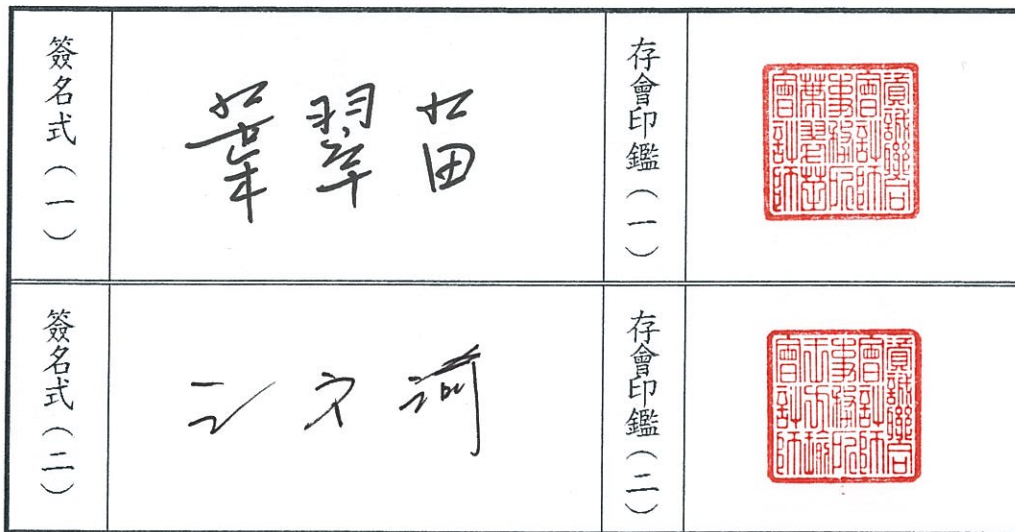 簽名式（一）
葉翠苗
存會印鑑（一）
資誠聯合
會計師
事務所
葉翠苗
會計師
簽名式（二）
存會印鑑（二）
資誠聯合
會計師
事務所
會計師